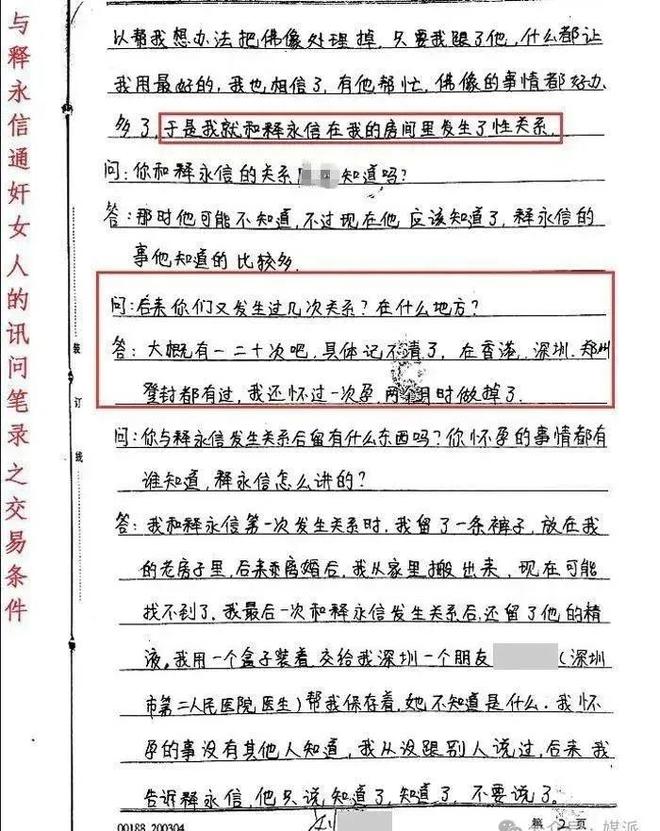 与释永信通奸女人的讯问笔录之交易条件
以帮我想办法把佛像处理掉,只要我跟了他,什么都让
我用最好的,我也相信了,有他帮忙,佛像的事情都好办
多了,于是我就和释永信在我的房间里发生了性关系.
问:你和释永信的关系 知道吗?
答:那时他可能不知道,不过现在他应该知道了,释永信的
事他知道的比较多.
问:后来你们又发生过几次关系?在什么地方?
答:大概有一二十次吧,具体记不清了,在香港.深圳.郑州
登封都有过,我还怀过一次孕,两个月时做掉了.
问:你与释永信发生关系后留有什么东西吗?你怀孕的事情都有
谁知道,释永信怎么讲的?
答:我和释永信第一次发生关系时,我留了一条裤子,放在我
的老房子里,后来离婚后,我从家里搬出来,现在可能
找不到了,我最后一次和释永信发生关系后,还留了他的精
液,我用一个盒子装着,交给我深圳一个朋友 (深圳
市第二人民医院医生)帮我保存着,她不知道是什么.我怀
孕的事没有其他人知道,我从没跟别人说过,后来我
告诉释永信,他只说知道了,知道了,不要说了.
装
订
线
00188 200304
第 2 页
公众号·媒派